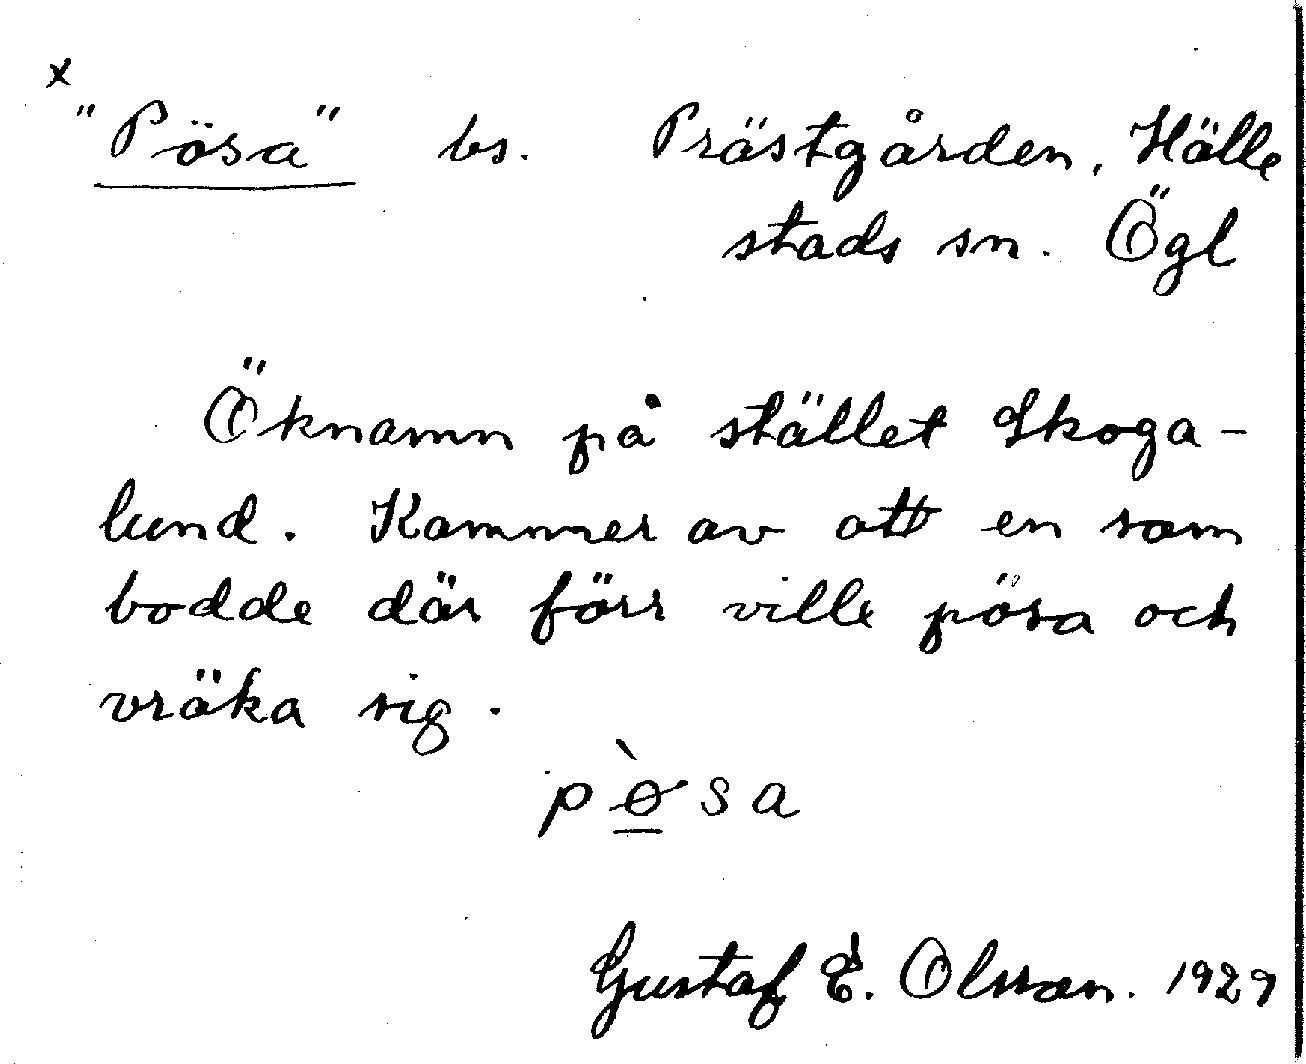 x
"Pösa" bs. Prästgården, Hälle
stads sn. Ögl
Öknamn på stället Skoga-
lund. Kommer av att en som
bodde där förr ville pösa och
vräka sig.
pø̠̀sa
Gustaf E. Olsson. 1929